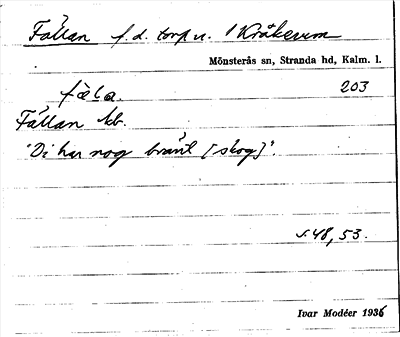 Fällan f.d. torp u. 1 Kråkerum
Mönsterås sn, Stranda hd, Kalm. l.
203
fäla.
Fällan kb.
"Di har nog bränt [skog]".
s. 48, 53.
Ivar Modéer 1936